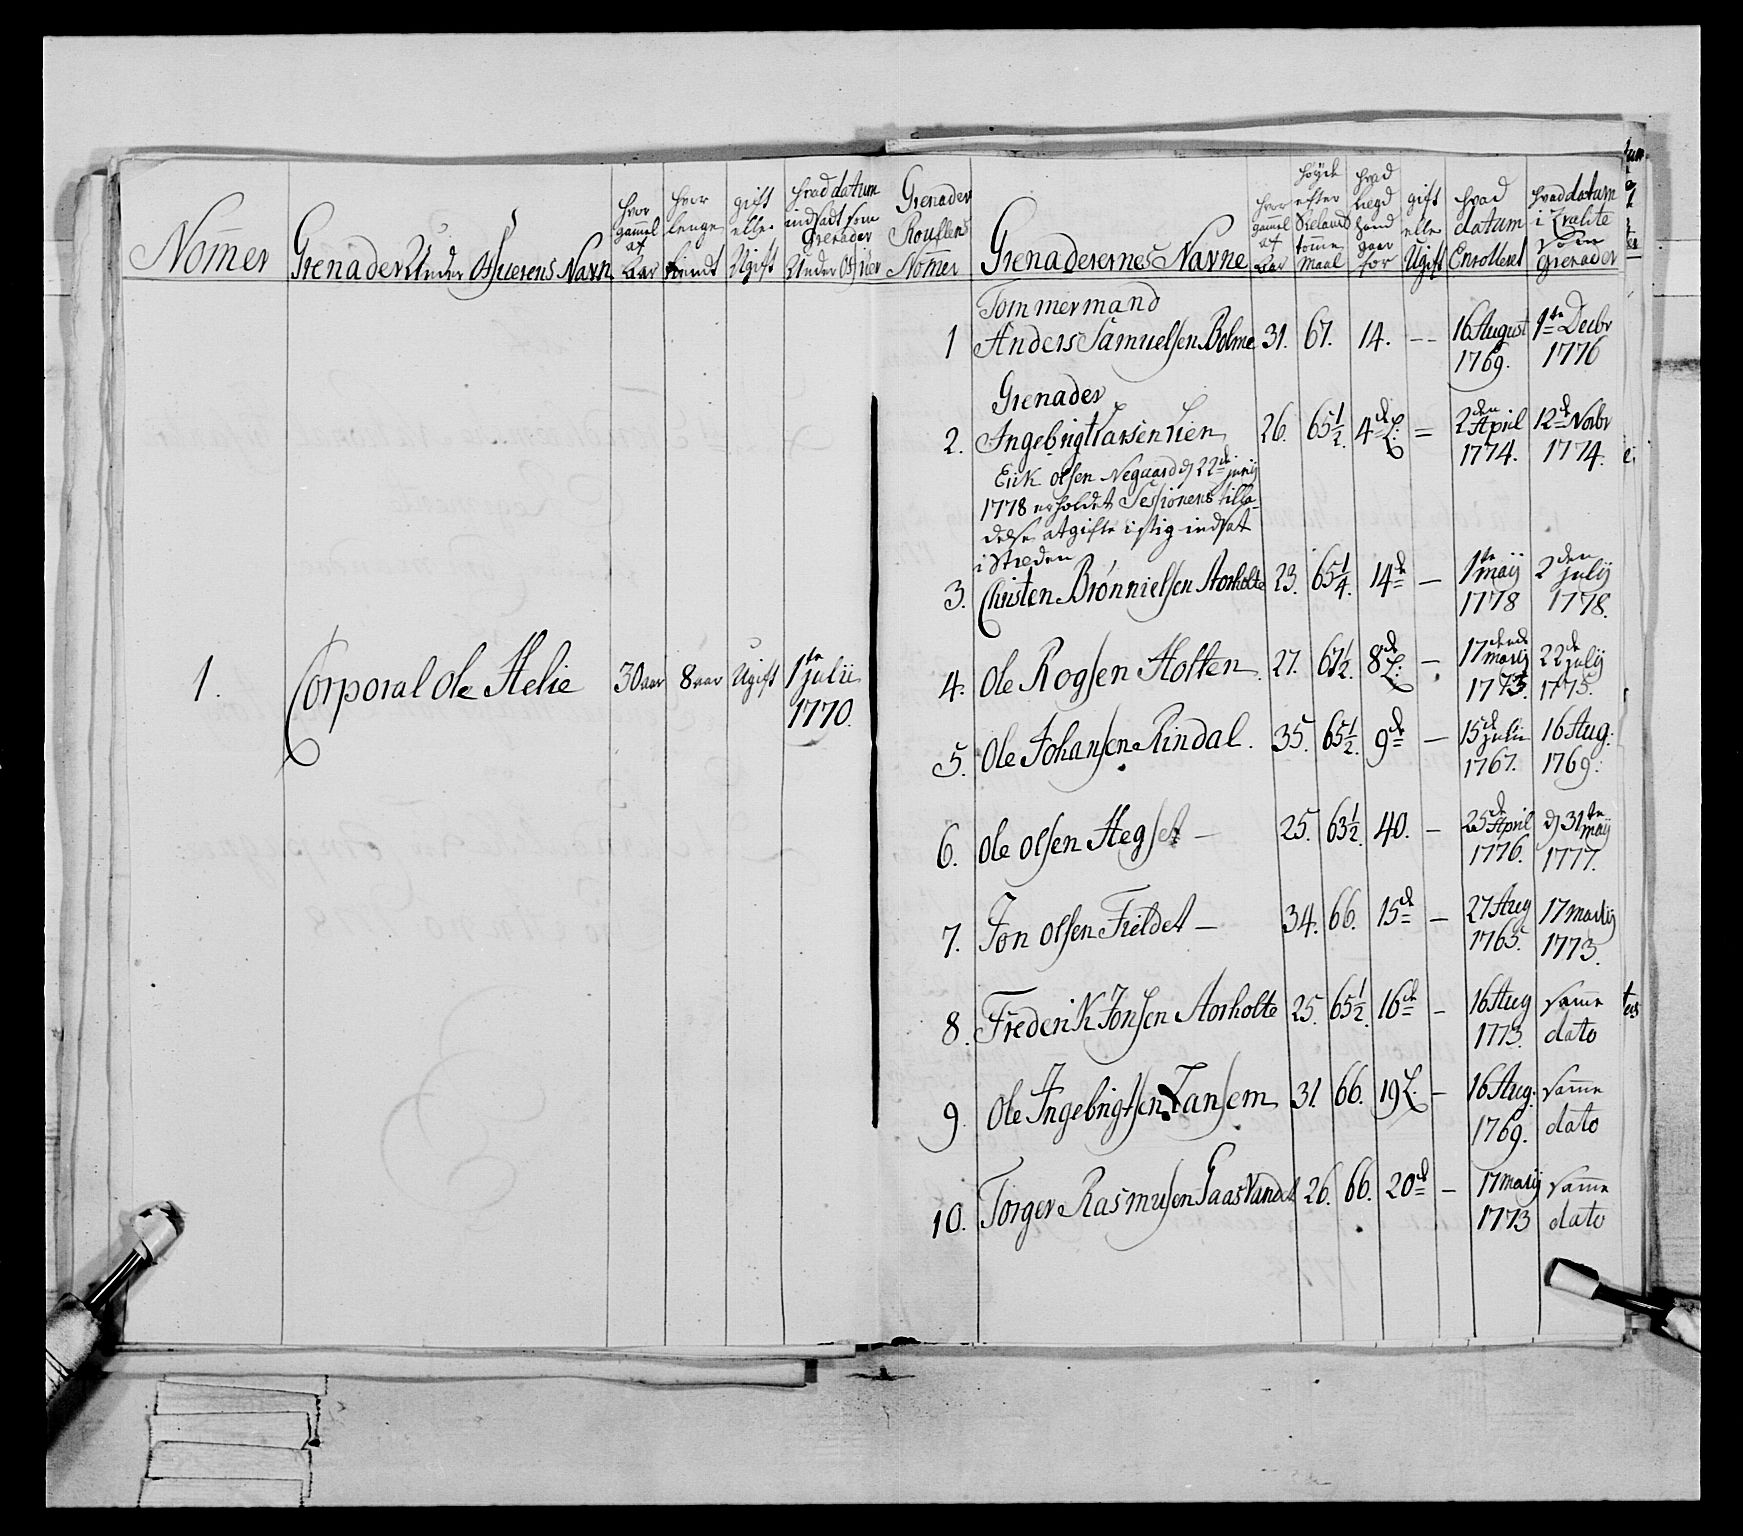 Nom̄er
Grenader Under Officerens Navn
hvor gam̄el af Aar
hvor lenge tient
gift eller Ugift
hvad datum indsadt som Grenader Under Officer
Grenader Roullens Nom̄er
Grenaderernes Navne
hvor gam̄el af Aar
høyde efter Sielands tomme Maal
hvad Lægd hand gaar for
gift elle Ugift
hvad datum Enrolleret
hvad datum i Qvalite som Grenader
1. Corporal Ole Helie 30 aar 8 aar Ugift 1te julii 1770.
Tommermand
1 Anders Samuelsen Bolme 31. 67. 14. -- 16 August 1769. 1te Decbr 1776
Grenader
2. Ingebrigt Larsen Lien 26. 65½ 4de L: = 2den April 1774. 12de Novbr 1774.
Erik Olsen Negaard d 22de junij
1778 erholdet Sessionens tilla-
delse at gifte i stig indsat
i Steden
3. Christen Brønnielsen Aorholte 23. 65¼. 14de — 1te maij 1778 2den julij 1778.
4. Ole Rogsen Holten 27. 67½. 8de L: — 17dende martij 1773. 22de julij 1775.
5. Ole Johansen Rindal. 35. 65½. 9de — 15de julii 1767. 16 Aug: 1769.
6. Ole Olsen Hegset — 25. 63½. 40. — 25de April 1776. d 31te maij 1777.
7. Jon Olsen Fieldet — 34. 66. 15de — 27 Aug 1765. 17 martij 1773.
8. Frederik Jonsen Aorholte 25. 65½. 16de — 16 Aug 1773. sam̄e dato
9. Ole Ingebrigtsen Tansem 31. 66. 19 L. — 16 Aug: 1769. sam̄e dato
10. Torger Rasmusen Gaasvandet 26. 66. 20de — 17 martij 1773 sam̄e dato